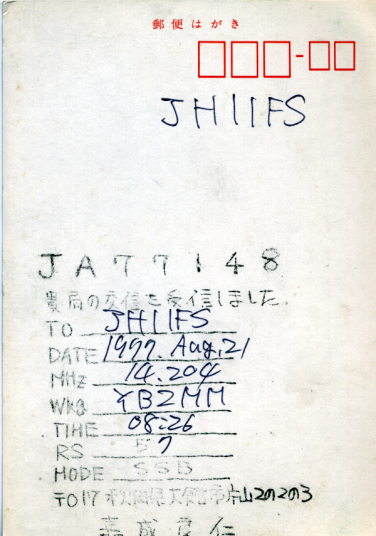 郵便はがき
JH1IFS
JA77148
貴局の交信を受信しました.
TO JH1IFS
DATE 1977. Aug. 21
MHz 14.204
WKG YB2MM
TIME 08:26
RS 57
MODE SSB
〒017 秋田県大館市片山2の2の3